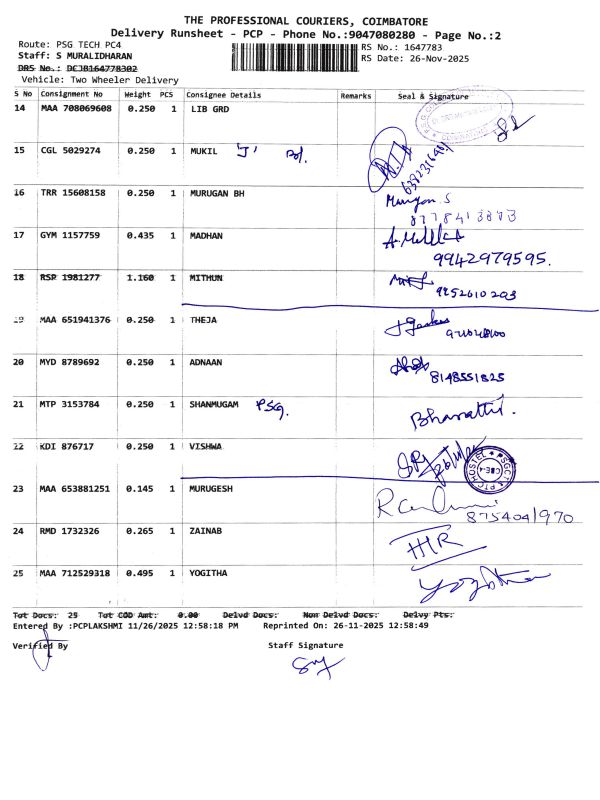 THE PROFESSIONAL COURIERS, COIMBATORE
Delivery Runsheet - PCP - Phone No.:9047080280 - Page No.:2
Route: PSG TECH PC4
RS No.: 1647783
Staff: S MURALIDHARAN
RS Date: 26-Nov-2025
DRS No.: DCJB164778302
Vehicle: Two Wheeler Delivery
S No Consignment No Weight PCS Consignee Details Remarks Seal & Signature
14 MAA 708069608 0.250 1 LIB GRD
15 CGL 5029274 0.250 1 MUKIL 'J'
16 TRR 15608158 0.250 1 MURUGAN BH Murugan S
17 GYM 1157759 0.435 1 MADHAN
9942979595.
18 RSP 1981277 1.160 1 MITHUN
9952610203
19 MAA 651941376 0.250 1 THEJA
20 MYD 8789692 0.250 1 ADNAAN
8148551825
21 MTP 3153784 0.250 1 SHANMUGAM PSG. Bharathi.
22 KDI 876717 0.250 1 VISHWA
23 MAA 653881251 0.145 1 MURUGESH
8754041970
24 RMD 1732326 0.265 1 ZAINAB
25 MAA 712529318 0.495 1 YOGITHA
Tot Docs: 25 Tot COD Amt: 0.00 Delvd Docs: Non Delvd Docs: Delvy Pts:
Entered By :PCPLAKSHMI 11/26/2025 12:58:18 PM Reprinted On: 26-11-2025 12:58:49
Verified By Staff Signature